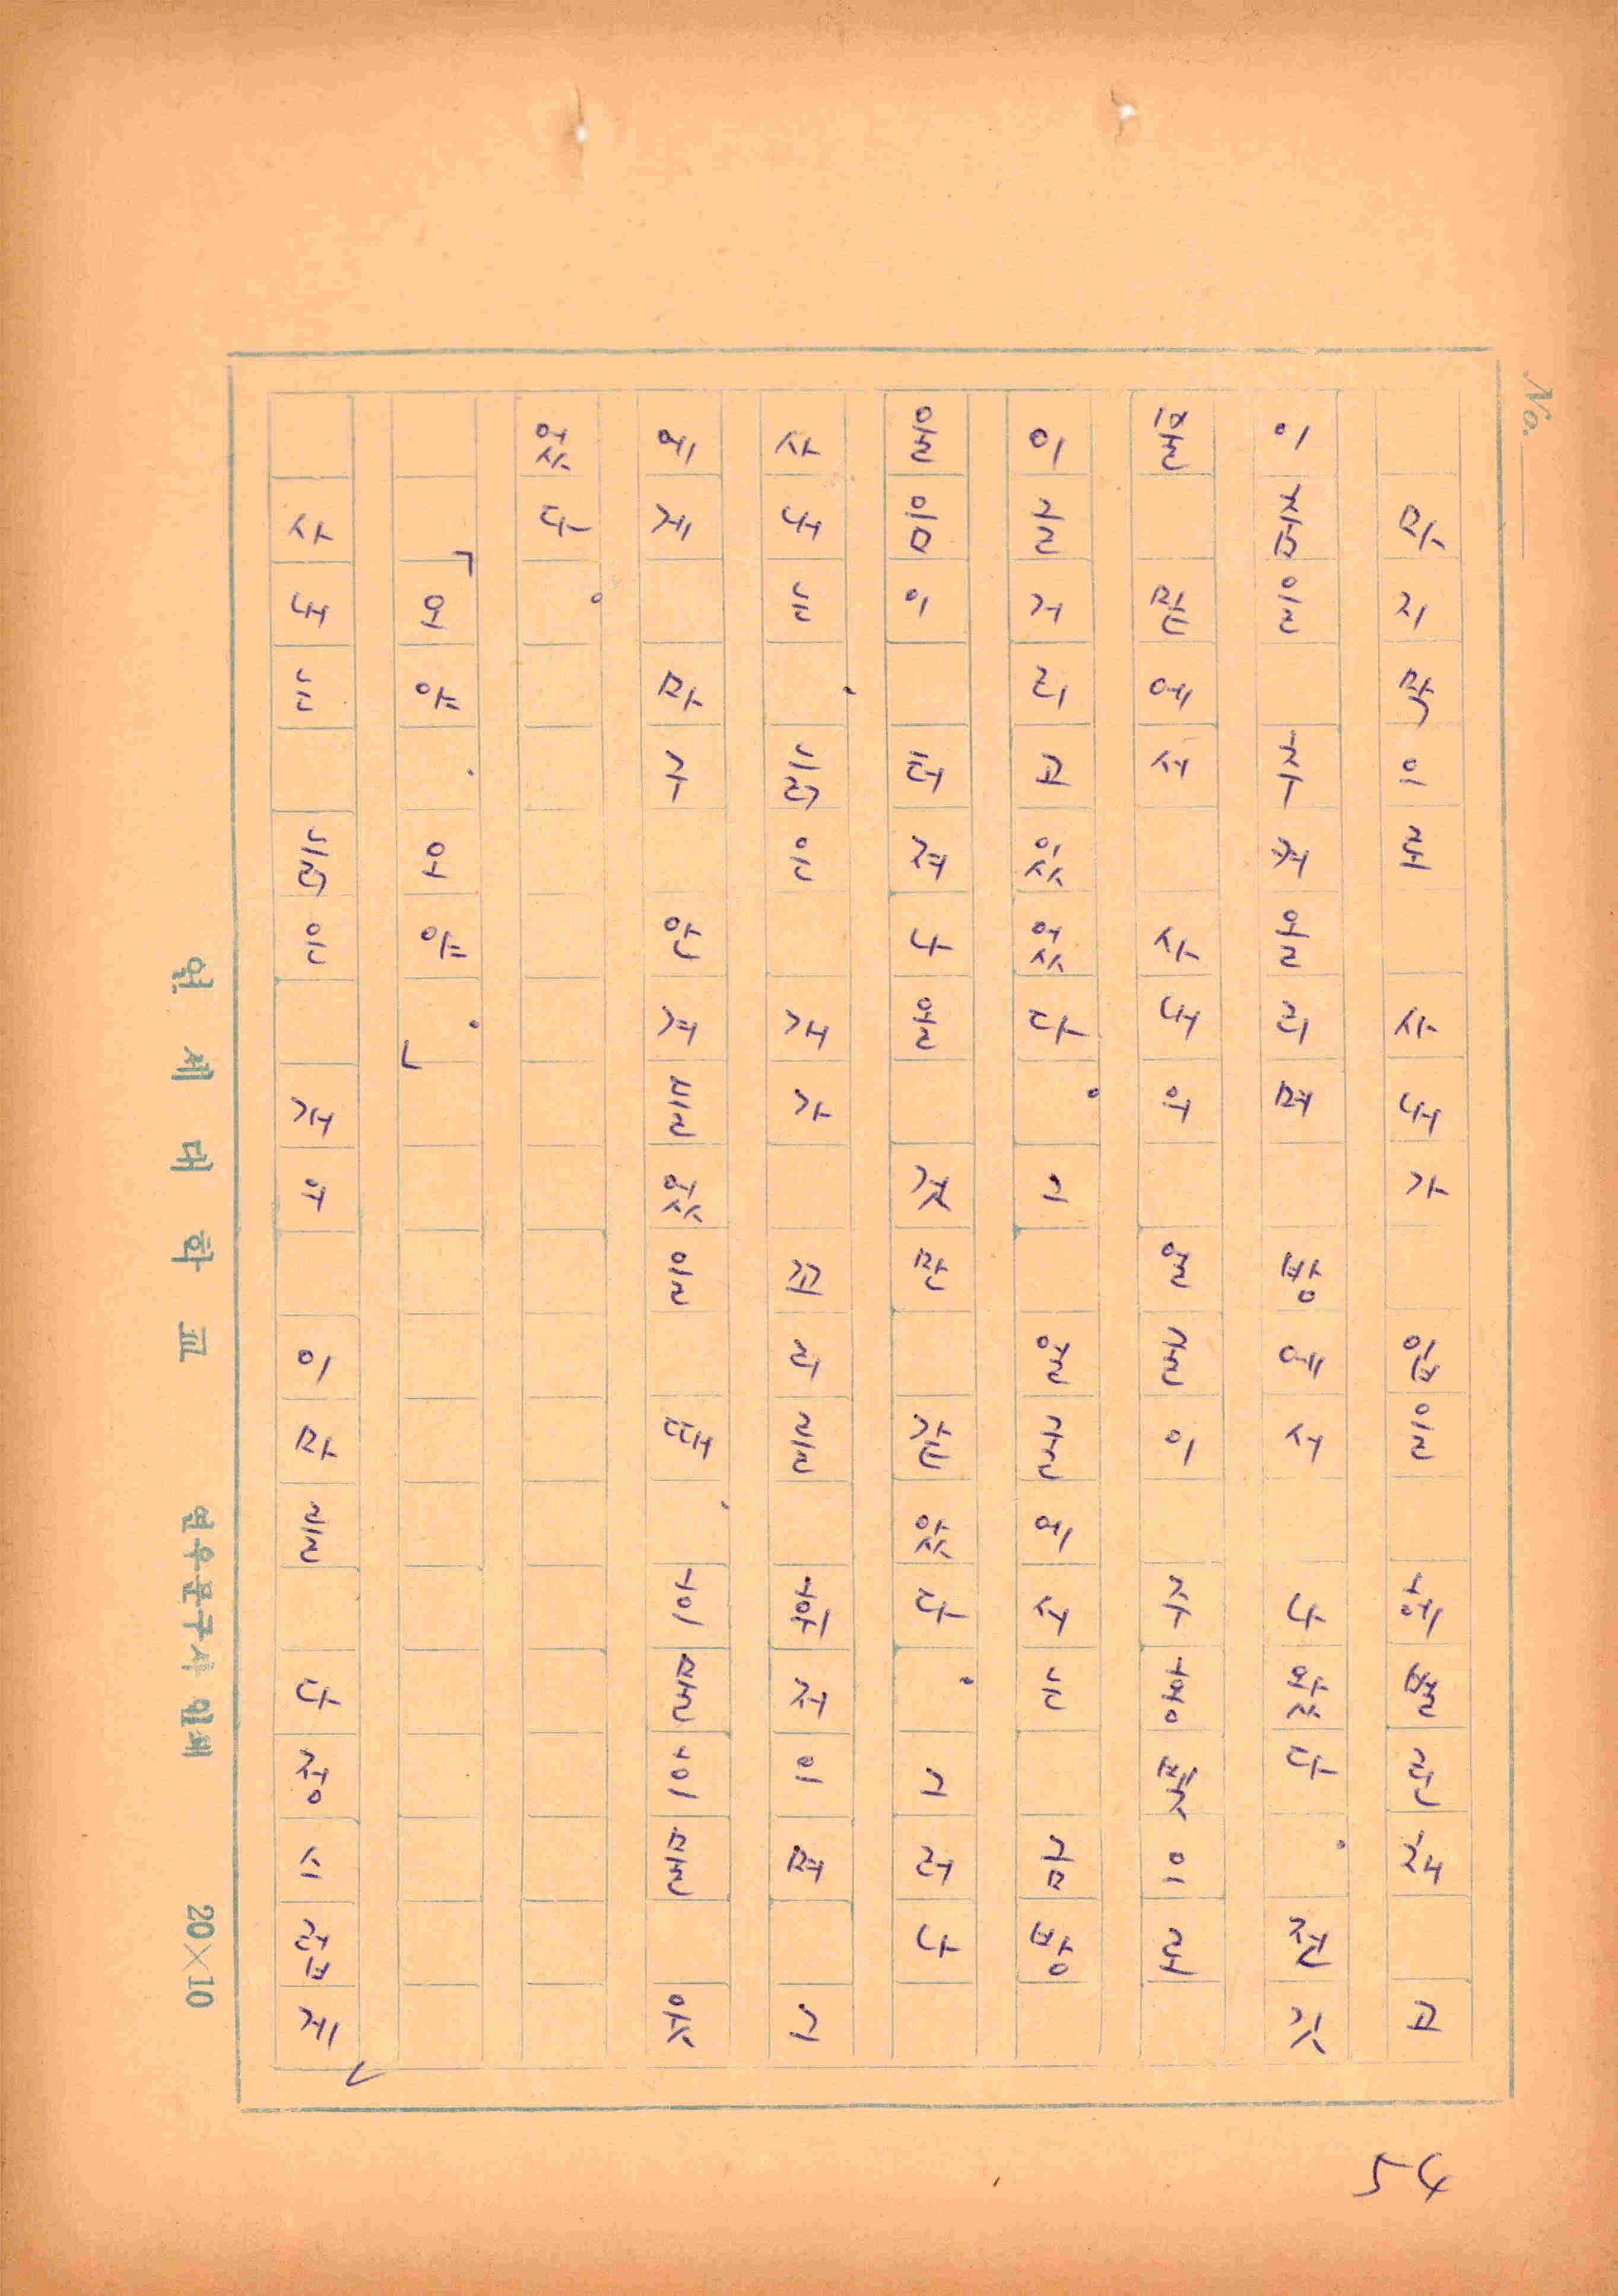 No.
마지막으로 사내가 입을 헤벌린채 고
이춤을 추켜올리며 방에서 나왔다. 전깃
불 밑에서 사내의 얼굴이 주홍빛으로
이글거리고있었다. 그 얼굴에서는 금방
울음이 터져나올 것만 같았다. 그러나
사내는, 늙은 개가 꼬리를 그
에게 마구 안겨들었을 때, 히물히물 웃
었다.
「워야, 워야.」
사내는 늙은 개의 이마를 다정스럽게
연세대학교 연우문구사 인쇄 20×10
54